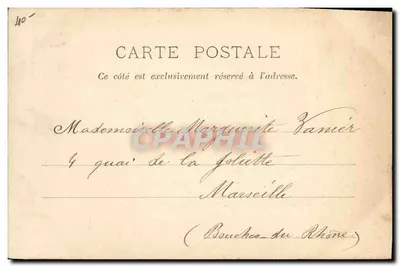 40-
CARTE POSTALE
Ce côté est exclusivement réservé à l'adresse.
Mademoiselle Marguerite Vanier
4 quai de la Joliette
CPARAMA
Marseille
(Bouches-du Rhône)